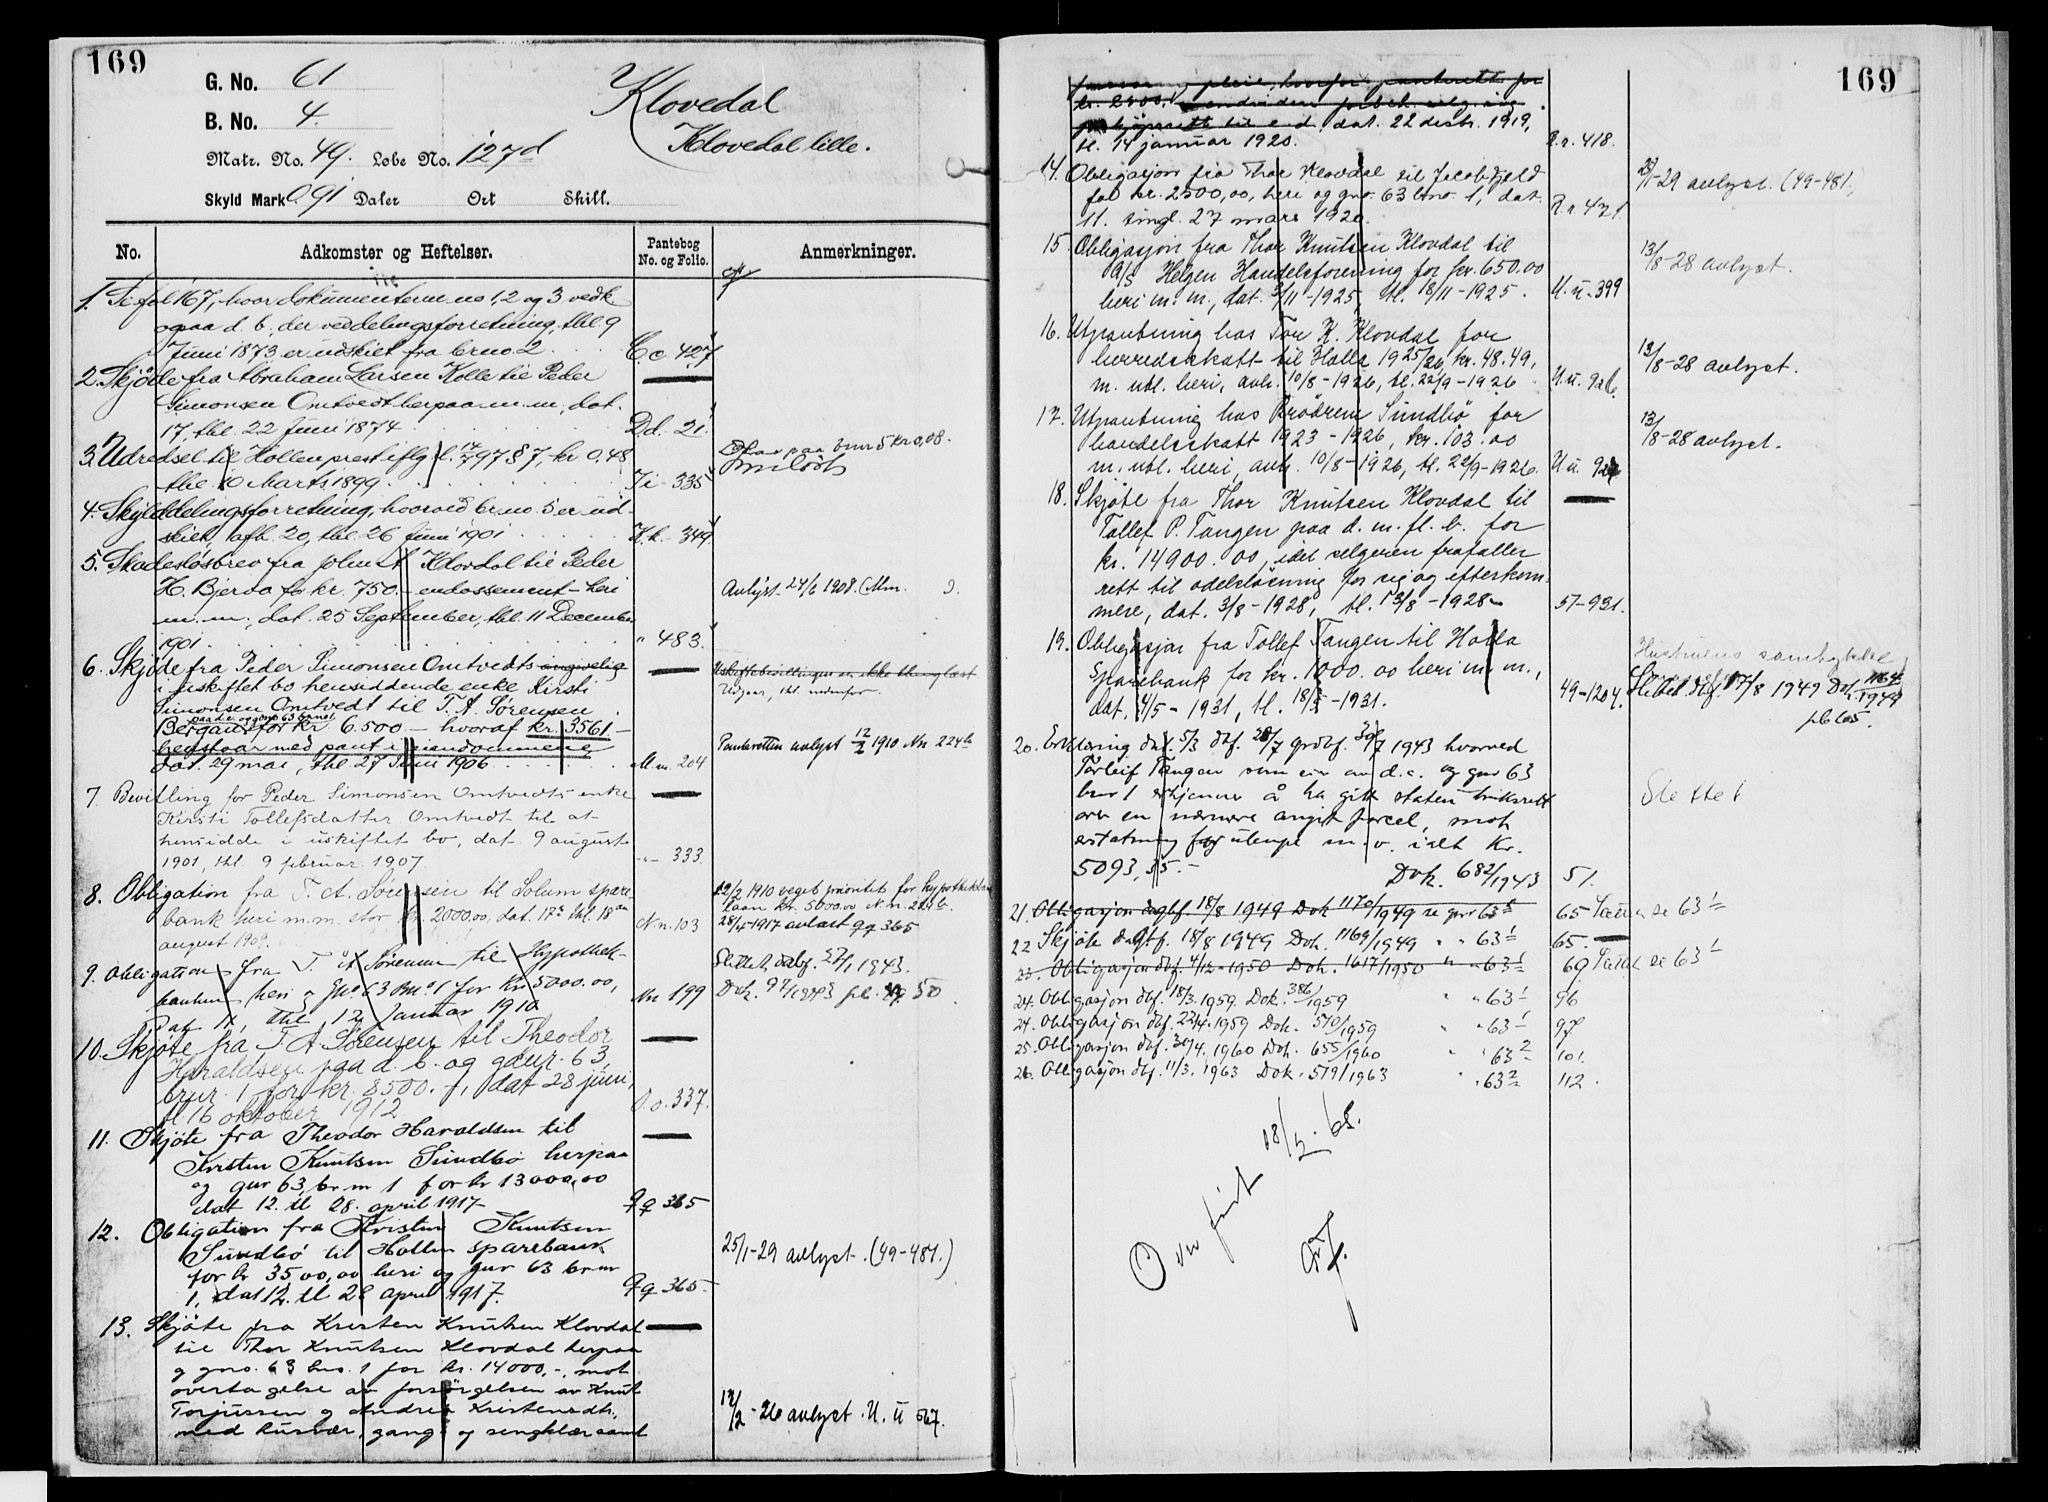 169
G. No. 61
B. No. 4.
Matr. No. 49. Løbe No. 127d
Skyld Mark 0.91 Daler Ort Skill.
Klovedal
Klovedal lille.
No. Adkomster og Heftelser. Pantebog No. og Folio. Anmerkninger.
1. Se fol 167, hvor dokumenterne no 1, 2 og 3 vedk
ogsaa d. b. der ved delingsforretning, thl. 9
Juni 1873 er udskilt fra brno 2 C.c 427
2. Skjøde fra Abraham Larsen Kolle til Peder
Simonsen Omtvedt herpaa m.m., dat.
17, thl. 22 Juni 1874 D.d. 21.
3. Udredsel til Hollen prest iflg l. 17/7 97 § 7, kr 0.48
thl. 10 Marts 1899 I.i. 335
Heraf paa bnr 5 kr 0,08.
4. Skylddelingsforretning, hvorved br.no. 5 er ud-
skilt, afh. 20, thl. 26 Juni 1901 K.k. 349
5. Skadesløsbrev fra John A Klovdal til Peder
H. Bjerva for kr. 750.- endossement - heri
m.m., dat. 25 September, thl. 11 December
1901 " 483.
Avlyst 24/6 1908. Mm.
6. Skjøde fra Peder Simonsen Omtvedts angivelig
i uskiftet bo hensiddende enke Kirsti
Simonsen Omtvedt til T. A. Sørensen
paa d.e. og gno 63 brno 1
Bergan for kr 6.500 — hvoraf kr. 3561.-
henstaar med pant i eiendommene
dat. 29 mai, thl. 27 Juni 1906 M.m. 204
Uskiftebevillingen er ikke thinglæst
Udgaar, thl. nedenfor.
Panteretten avlyst 12/2 1910 Nn 224b
7. Bevilling for Peder Simonsen Omtvedts enke
Kirsti Tollefsdatter Omtvedt til at
hensidde i uskiftet bo, dat. 9 august
1901, thl. 9 februar 1907. -"- 333.
8. Obligation fra T. A. Sørensen til Solum spare
bank heri m.m. stor kr. 2000.00, dat. 17de thl. 18de
august 1909. N.n. 103
12/2 1910 veget prioritet for hypothekbank
laan kr. 5000.00 N.n. 224b.
28/4 1917 avlæst Qq 365
9. Obligation fra T. A. Sørensen til Hypothek-
banken heri og Gno 63 Bno 1 for Kr. 5000.00,
Dat 11, thl 12 Januar 1910 Nn 199
Slettet dbf. 27/1 1943.
Dok. 97/1943 fol. 50
10. Skjøte fra T. A. Sørensen til Theodor
Haraldsen paa d. b. og gdnr. 63
brnr. 1 for kr. 8500.-, dat 28 juni,
tl. 16 oktober 1912 O.o. 337.
11. Skjøte fra Theodor Haraldsen til
Kristen Knutsen Sundbø herpaa
og gnr 63 br.nr 1 for kr 13000,00
dat 12. tl 28. april 1917 Qq 365
12. Obligation fra Kristen Knutsen
Sundbø til Hollen sparebank
for kr 3500,00 heri og gnr 63 br.nr
1, dat 12. tl 28 april 1917. Qq 365
25/1-29 avlyst. (49-481.)
13. Skjøte fra Kristen Knutsen Klovdal
til Thor Knutsen Klovdal herpaa
og gno. 63 bno. 1 for kr. 14000.-, mot
overtagelse av forsørgelsen av Knut
Torjussen og Andrea Kristensdtr.,
med husvær, gang- og sengklær samt
-26 avlyst. U. u 567.
169
pleie, hvorfor panterett for
kr. 2500.
dat. 22 desbr. 1919,
tl. 14 januar 1920. R.r. 418.
14. Obligasjon fra Thor Klovdal til Jacob Fjeld
for kr. 2500,00, heri og gno. 63 bno. 1, dat.
11. tingl. 27 mars 1920. R.r 471
25/1-29 avlyst. (49-481.)
15. Obligasjon fra Thor Knutsen Klovdal til
A/S Helgen Handelsforening for kr. 650.00
heri m.m., dat. 3/11-1925, tl. 18/11-1925. U.u. 399
13/8-28 avlyst.
16. Utpantning hos Tor K. Klovdal for
herredsskatt til Holla 1925/26, kr. 48.49,
m. utl. heri, avh. 10/8-1926, tl. 22/9-1926 U.u. 926.
13/8-28 avlyst.
17. Utpantning hos Brødrene Sundbø for
handelsskatt 1923-1926, kr. 103.00
m. utl. heri, avh. 10/8-1926, tl. 22/9-1926. U.u. 927
13/8-28 avlyst.
18. Skjøte fra Thor Knutsen Klovdal til
Tollef P. Tangen paa d. m. fl. b. for
kr. 14900.00, idet selgeren frafaller
rett til odelsløsning for sig og efterkom-
mere, dat. 3/8-1928, tl. 13/8-1928 57-931.
19. Obligasjon fra Tollef Tangen til Holla
Sparebank for kr. 1000.00 heri m.m.,
dat. 4/5-1931, tl. 18/5-1931. 49-1204.
Hustruens samtykke
Slettet dbf. 17/8 1949 Dok 1164/1949
fol 65.
20. Erklæring dat. 5/3 dbf. 28/7 grdbf. 30/7 1943 hvorved
Torleif Tangen som eier av d.e. og gnr 63
bnr 1 erkjenner å ha gitt staten bruksrett
over en nærmere angitt parcel, mot
erstatning for ulempe m.v. i alt Kr.
5093,35.- Dok. 682/1943 51.
Slettet
21. Obligasjon dgbf. 18/8 1949 Dok 1170/1949 se gnr 63/1 65 Same se 63/1
22 Skjøte dagbf. 18/8 1949 Dok. 1169/1949 " " 63/1 65.
23. Obligasjon dbf. 4/12 1950 Dok. 1617/1950 " " 63/1 69 se 63/1
24. Obligasjon dbf. 18/3. 1959. Dok. 386/1959 " " 63/1 96
24. Obligasjon dbf. 22/4. 1959 Dok. 510/1959 " " 63/1 97
25. Obligasjon dbf. 30/4. 1960 Dok. 655/1960 " " 63/2 101.
26. Obligasjon dbf. 11/3. 1963 Dok. 519/1963 " " 63/2 112.
Overført